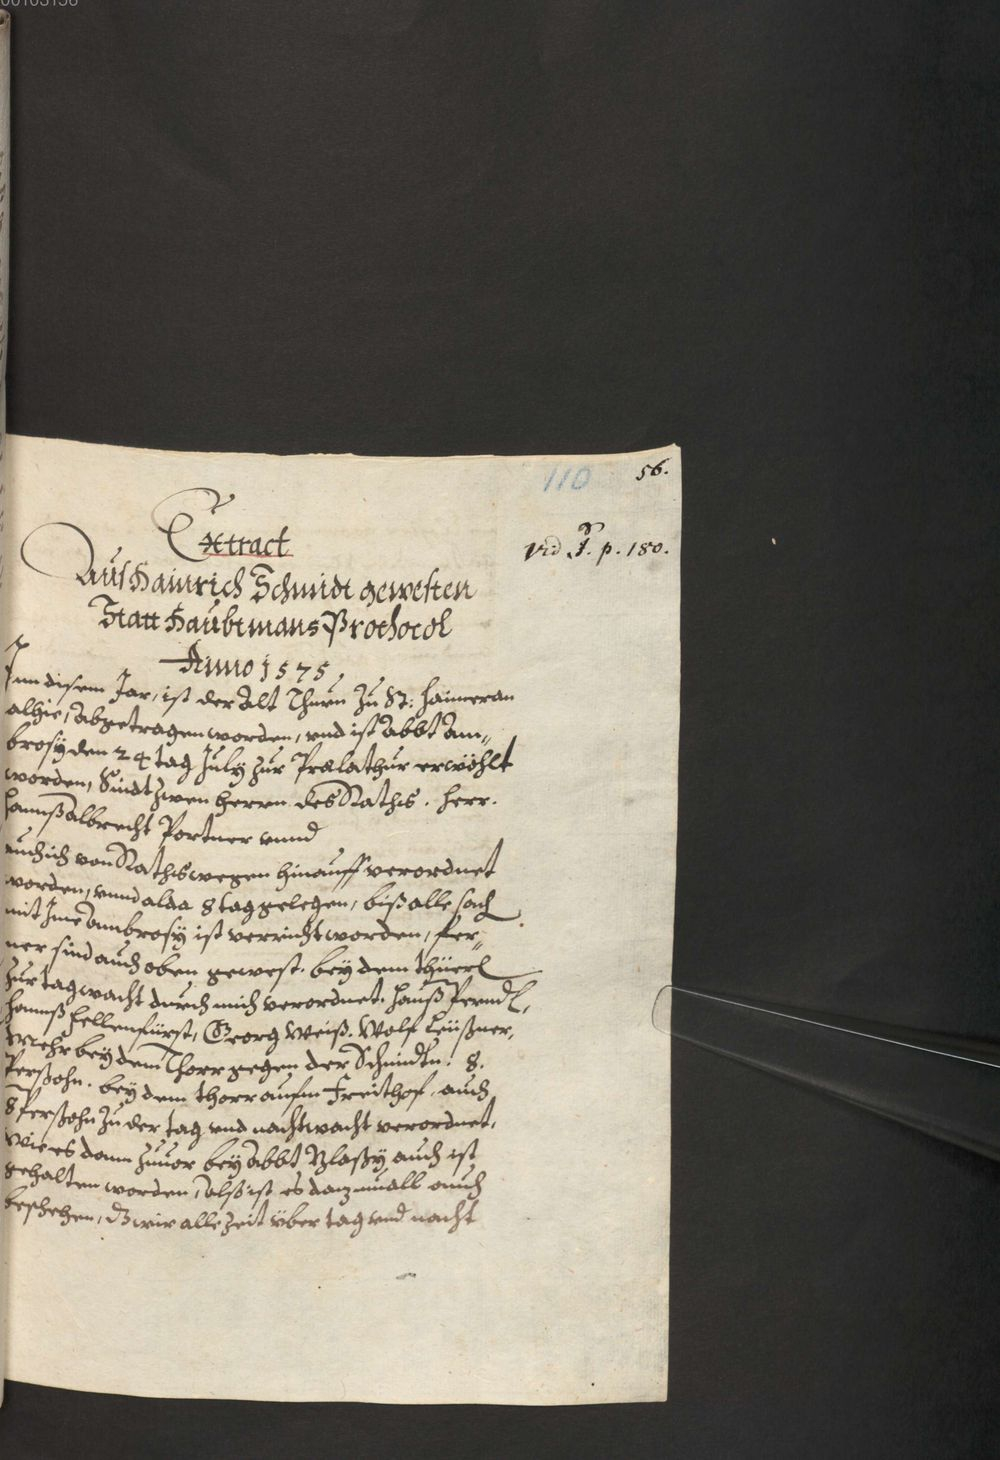 110
56.
vid J. p. 180.
Extract
Aus Hainrich Schmidt gewesten
Statt Haubtmans Prothocol
Anno 1575,
Inn disem Jar, ist der Alt Thurn zu St: Haimeran
alhie, Abgetragen worden, vnd ist Abbt Am„
brosÿ den 24 tag Julÿ zur Prælathur erwöhlt
worden, Sindt zwen herrn des Raths. Herr.
Hannß Albrecht Portner vnnd
auch ich von Raths wegen hinauff verordnet
worden, vnnd alda 8 tag gelegen, biß alle sach
mit Ime Ambrosÿ ist verricht worden, fer„
ner sind auch oben gewest. beÿ dem thüerl
zur tagwacht durch mich verordnet. Hanß Perndl,
Hannß Hellenfürst, Georg Weiß. Wolf Leüßner,
Mehr beÿ dem Thorr gegen der Schmidtn. 8.
Perßohn. beÿ dem thorr aufm Freithof, auch
8 Perßohn zu der tag vnd nachtwacht verordnet,
Wie es dann zuuor beÿ Abbt Blasÿ auch ist
gehalten worden, Alß ist es dazmall auch
beschehen, dz wir alle zeit über tag vnd nacht